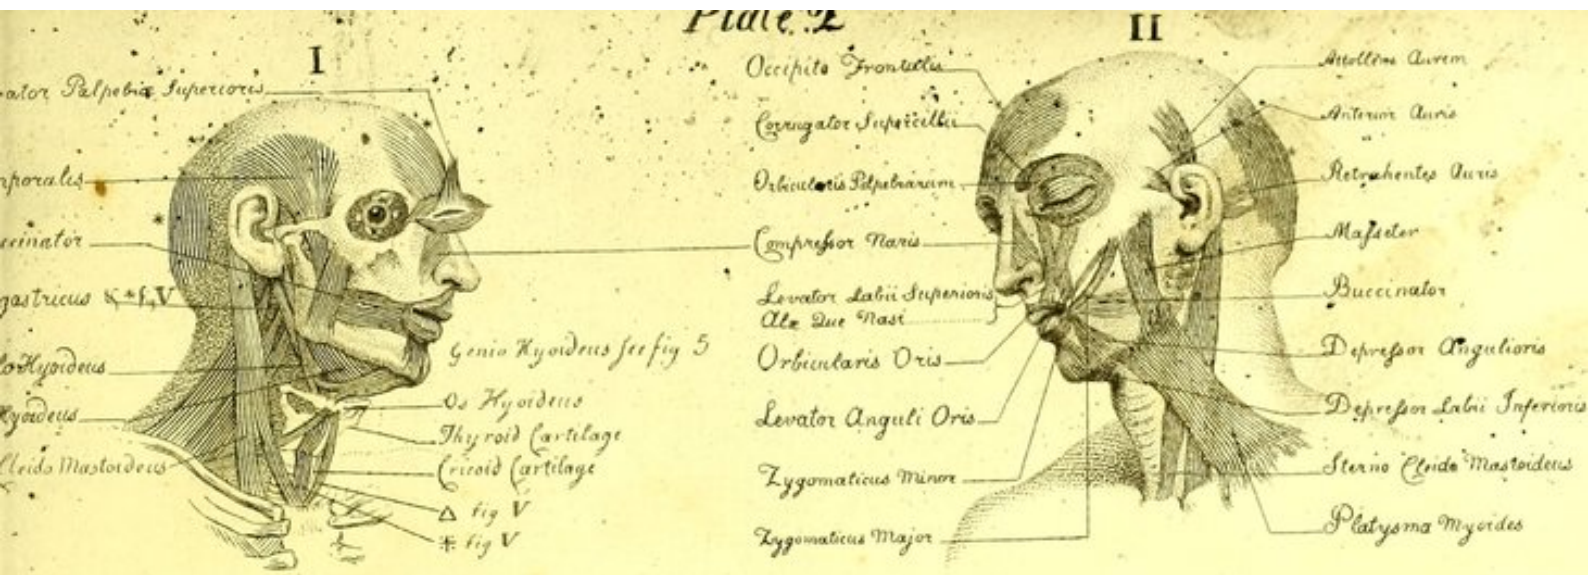 Plate. 2
I
II
ator Palpebiæ Superioris
mporalis
ccinator
gastricus & *f.V
loHyoideus
Hyoideus
Cleido Mastoideus
Genio Hyoideus see fig 5
Os Hyoideus
Thyroid Cartilage
Cricoid Cartilage
△ fig V
⁜ fig V
Occipito Frontallis
Corrugator Supercillii
Orbicularis Palpebrarum
Compressor Naris
Levator Labii Superioris
Alæ Que Nasi
Orbicularis Oris
Levator Anguli Oris
Zygomaticus Minor
Zygomaticus Major
Attollens Aurem
Anterior Auris
Retrahentes Auris
Masseter
Buccinator
Depressor Angulioris
Depressor Labii Inferioris
Sterno Cleido Mastoideus
Platysma Myoides